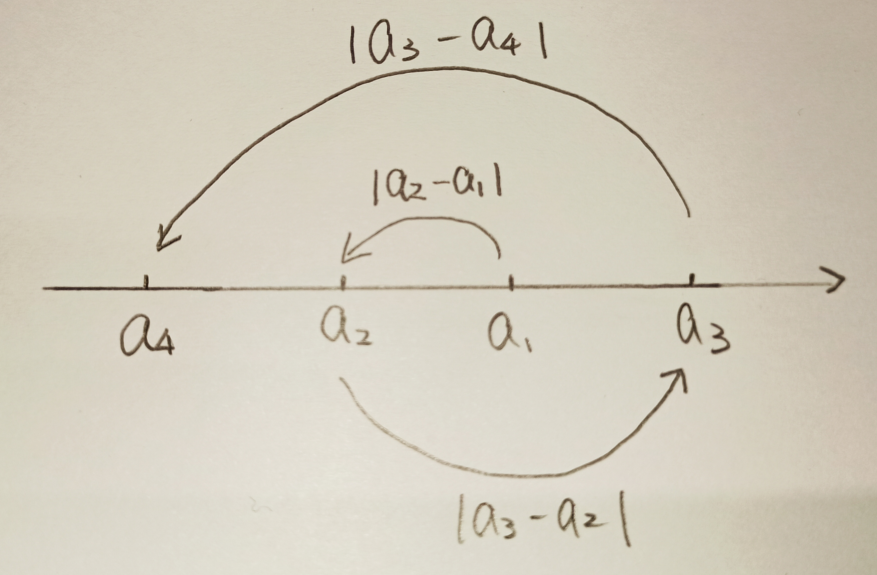 |a₃-a₄|
|a₂-a₁|
a₄ a₂ a₁ a₃
|a₃-a₂|